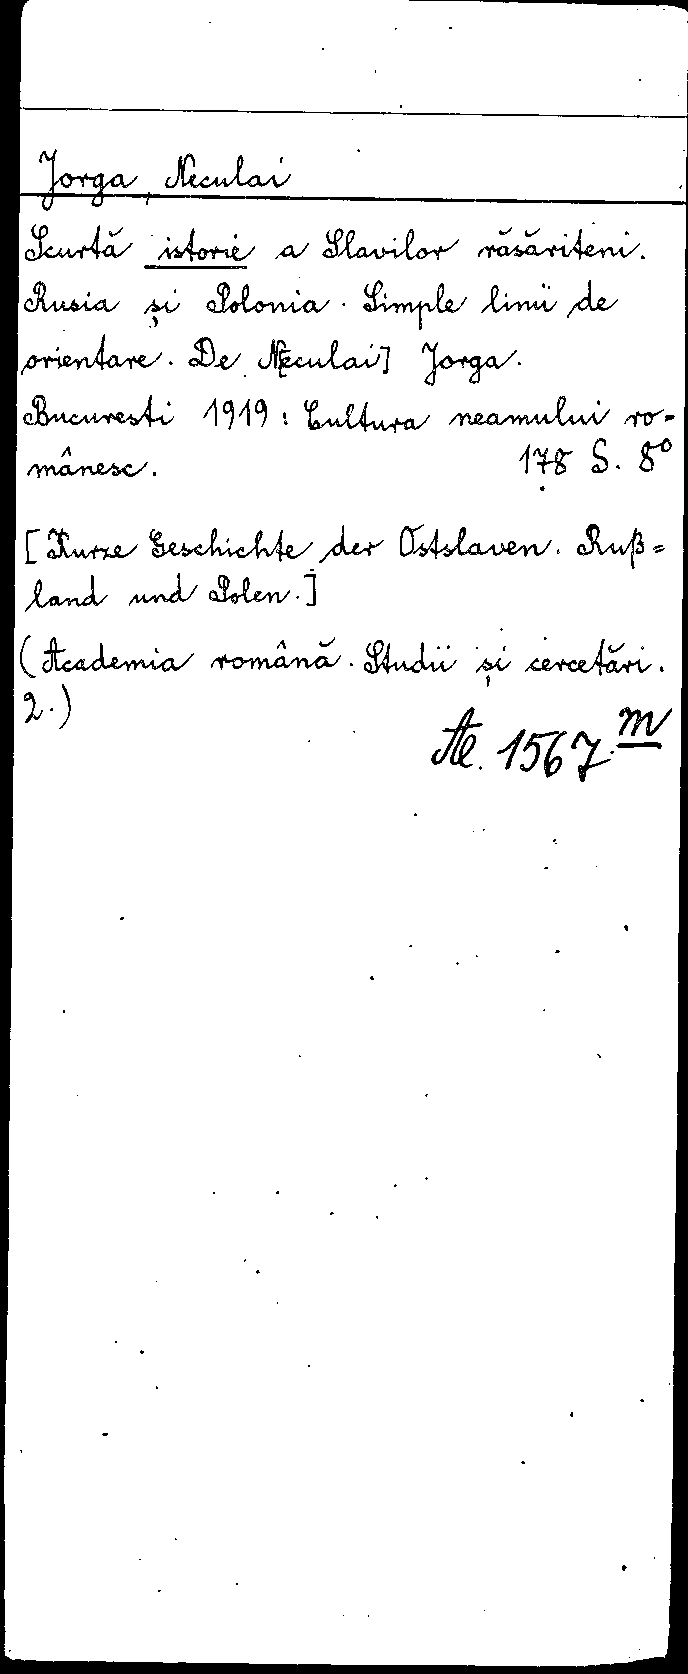 Jorga, Neculai
Scurtă istorie a Slavilor răsăriteni.
Rusia și Polonia. Simple linii de
orientare. De N[eculai] Jorga.
Bucuresti 1919: Cultura neamului ro-
mânesc. 178 S. 8°
[Kurze Geschichte der Ostslaven. Ruß-
land und Polen.]
(Academia română. Studii și cercetări.
2.)
Ac. 1567 m